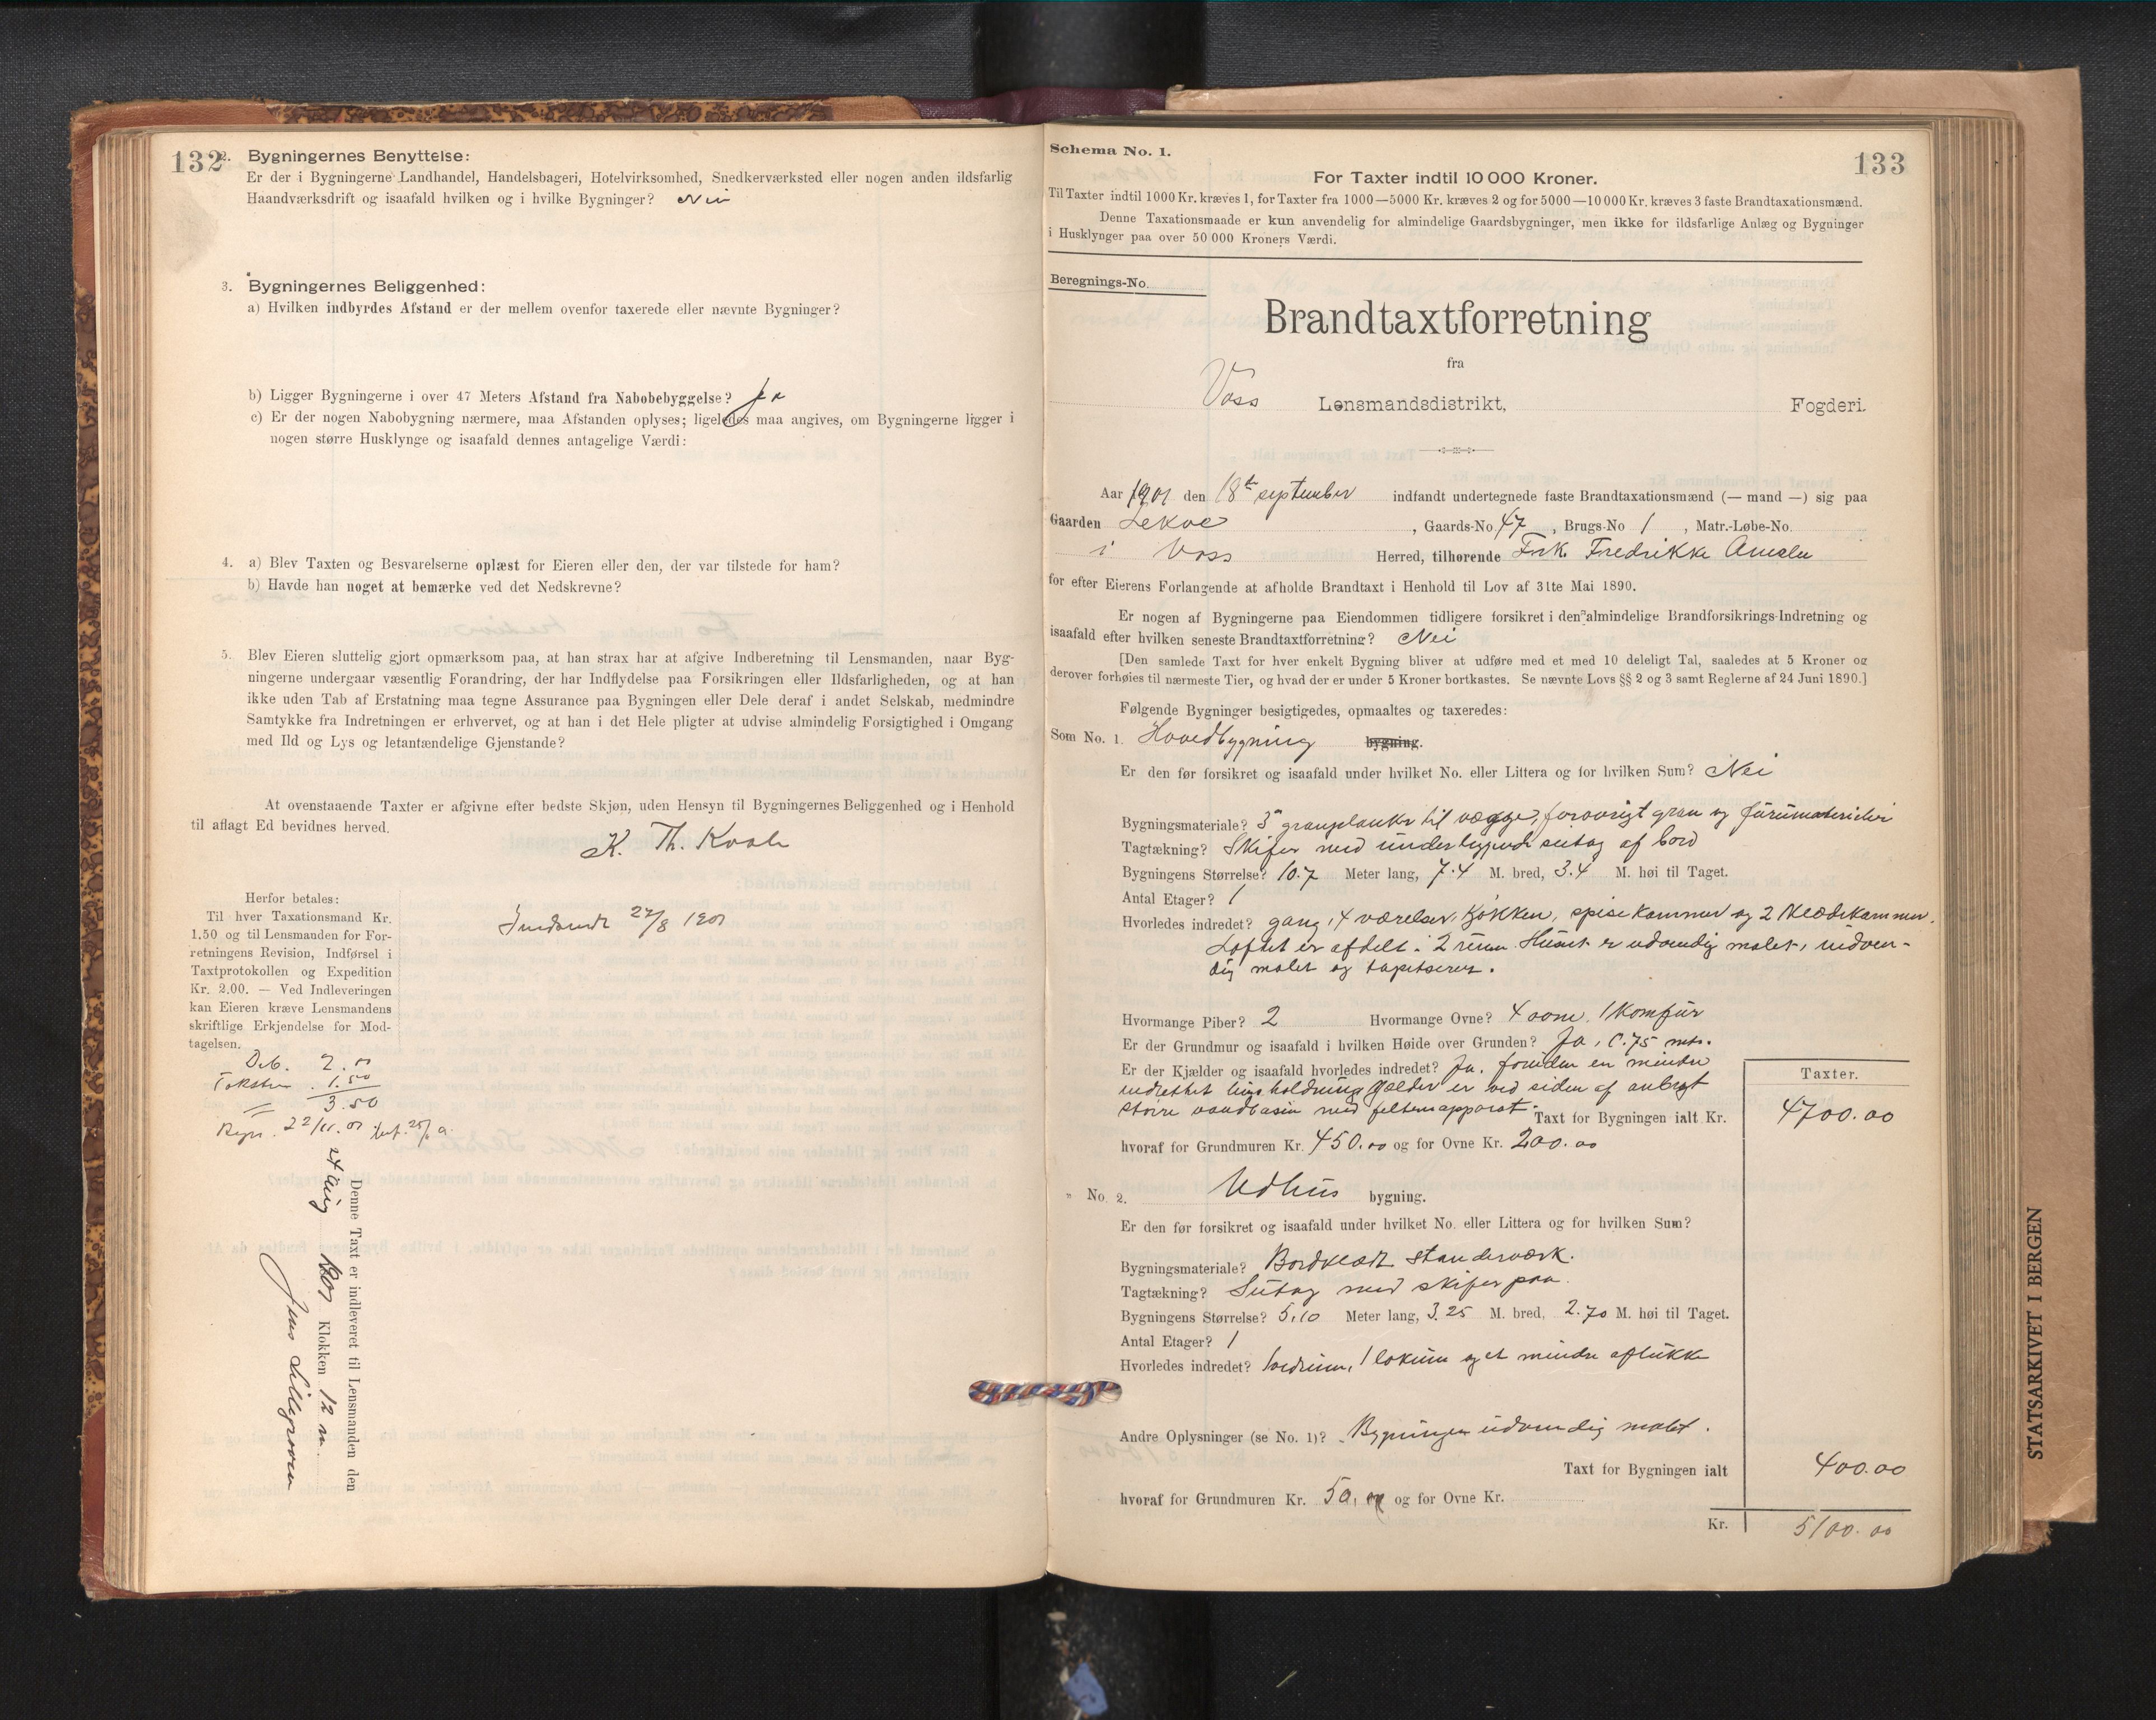 132
2. Bygningernes Benyttelse:
Er der i Bygningerne Landhandel, Handelsbageri, Hotelvirksomhed, Snedkerværksted eller nogen anden ildsfarlig
Haandværksdrift og isaafald hvilken og i hvilke Bygninger? Nei
3. Bygningernes Beliggenhed:
a) Hvilken indbyrdes Afstand er der mellem ovenfor taxerede eller nævnte Bygninger?
b) Ligger Bygningerne i over 47 Meters Afstand fra Nabobebyggelse? Ja
c) Er der nogen Nabobygning nærmere, maa Afstanden oplyses; ligeledes maa angives, om Bygningerne ligger i
nogen større Husklynge og isaafald dennes antagelige Værdi:
4. a) Blev Taxten og Besvarelserne oplæst for Eieren eller den, der var tilstede for ham?
b) Havde han noget at bemærke ved det Nedskrevne?
5. Blev Eieren sluttelig gjort opmærksom paa, at han strax har at afgive Indberetning til Lensmanden, naar Byg-
ningerne undergaar væsentlig Forandring, der har Indflydelse paa Forsikringen eller Ildsfarligheden, og at han
ikke uden Tab af Erstatning maa tegne Assurance paa Bygningen eller Dele deraf i andet Selskab, medmindre
Samtykke fra Indretningen er erhvervet, og at han i det Hele pligter at udvise almindelig Forsigtighed i Omgang
med Ild og Lys og letantændelige Gjenstande?
At ovenstaaende Taxter er afgivne efter bedste Skjøn, uden Hensyn til Bygningernes Beliggenhed og i Henhold
til aflagt Ed bevidnes herved.
K. Th.
Herfor betales:
Til hver Taxationsmand Kr.
1.50 og til Lensmanden for For-
retningens Revision, Indførsel i
Taxtprotokollen og Expedition
Kr. 2.00. — Ved Indleveringen
kan Eieren kræve Lensmandens
skriftlige Erkjendelse for Mod-
tagelsen.
27/8 1901
2.00
1.50
3.50
Denne Taxt er indleveret til Lensmanden den
24 Aug 1901 Klokken 12 m.
Jens Lillegraven
Schema No. 1.
133
For Taxter indtil 10 000 Kroner.
Til Taxter indtil 1000 Kr. kræves 1, for Taxter fra 1000—5000 Kr. kræves 2 og for 5000—10 000 Kr. kræves 3 faste Brandtaxationsmænd.
Denne Taxationsmaade er kun anvendelig for almindelige Gaardsbygninger, men ikke for ildsfarlige Anlæg og Bygninger
i Husklynger paa over 50 000 Kroners Værdi.
Beregnings-No.
Brandtaxtforretning
fra
Voss Lensmandsdistrikt, Fogderi.
Aar 1901 den 18de september indfandt undertegnede faste Brandtaxationsmænd (— mand —) sig paa
Gaarden Lekve, Gaards-No. 47, Brugs-No 1, Matr.-Løbe-No.
i Voss Herred, tilhørende Frk. Fredrikke Amsler
for efter Eierens Forlangende at afholde Brandtaxt i Henhold til Lov af 31te Mai 1890.
Er nogen af Bygningerne paa Eiendommen tidligere forsikret i den almindelige Brandforsikrings-Indretning og
isaafald efter hvilken seneste Brandtaxtforretning? Nei
[Den samlede Taxt for hver enkelt Bygning bliver at udføre med et med 10 deleligt Tal, saaledes at 5 Kroner og
derover forhøies til nærmeste Tier, og hvad der er under 5 Kroner bortkastes. Se nævnte Lovs §§ 2 og 3 samt Reglerne af 24 Juni 1890.]
Følgende Bygninger besigtigedes, opmaaltes og taxeredes:
Som No. 1. Hovedbygning bygning.
Er den før forsikret og isaafald under hvilket No. eller Littera og for hvilken Sum? Nei
Bygningsmateriale? 3" granplanker til vægge, forøvrigt gran og furumaterialer
Tagtækning? Skifer med underliggende sutag af bord
Bygningens Størrelse? 10.7 Meter lang, 7.4 M. bred, 3.4 M. høi til Taget.
Antal Etager? 1
Hvorledes indredet? gang, 4 værelser, Køkken, spisekammer og 2 klædekammer.
Loftet er afdelt i 2 rum. Huset er udvendig malet, indven-
dig malet og tapetseret.
Hvormange Piber? 2 Hvormange Ovne? 4 ovne, 1 Komfur
Er der Grundmur og isaafald i hvilken Høide over Grunden? Ja, 0.75 mtr.
Er der Kjælder og isaafald hvorledes indredet? Ja, foruden en mindre
indrettet husholdningskjælder er ved siden af anbragt
større vandbasin med filterapparat. Taxt for Bygningen ialt Kr.
Taxter.
4700.00
hvoraf for Grundmuren Kr. 450.00 og for Ovne Kr. 200.00
" No. 2. Udhus bygning.
Er den før forsikret og isaafald under hvilket No. eller Littera og for hvilken Sum?
Bygningsmateriale? Bordklædt standerværk.
Tagtækning? Sutag med skifer paa.
Bygningens Størrelse? 5,10 Meter lang, 3.25 M. bred, 2.70 M. høi til Taget.
Antal Etager? 1
Hvorledes indredet? Vedrum, 1 lokum og et mindre aflukke
Andre Oplysninger (se No. 1)? Bygningen udvendig malet.
Taxt for Bygningen ialt 400.00
hvoraf for Grundmuren Kr. 50,00 og for Ovne Kr.
Kr. 5100.00
STATSARKIVET I BERGEN